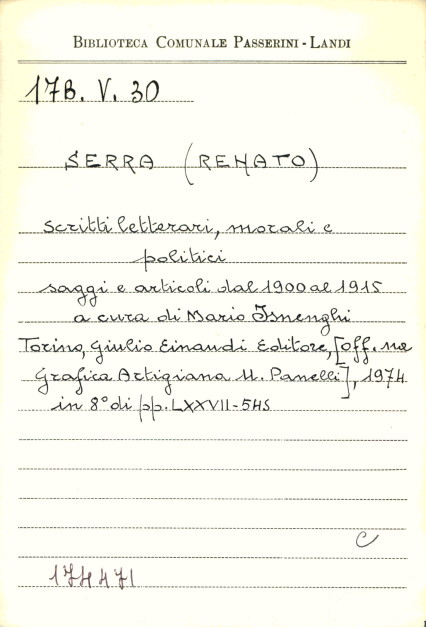 BIBLIOTECA COMUNALE PASSERINI - LANDI
17B. V. 30
SERRA (RENATO)
scritti letterari, morali e
politici
saggi e articoli dal 1900 al 1915
a cura di Mario Isnenghi
Torino, Giulio Einaudi Editore, [off. na
Grafica Artigiana U. Panelli], 1974
in 8° di pp. LXXVII-545
C
174471